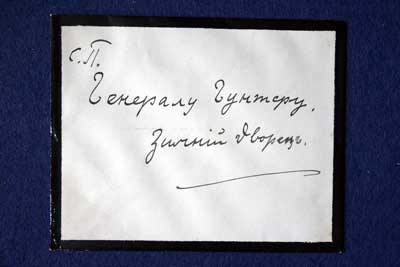 С.П.
Генералу Гунтеру.
Зимній Дворецъ.